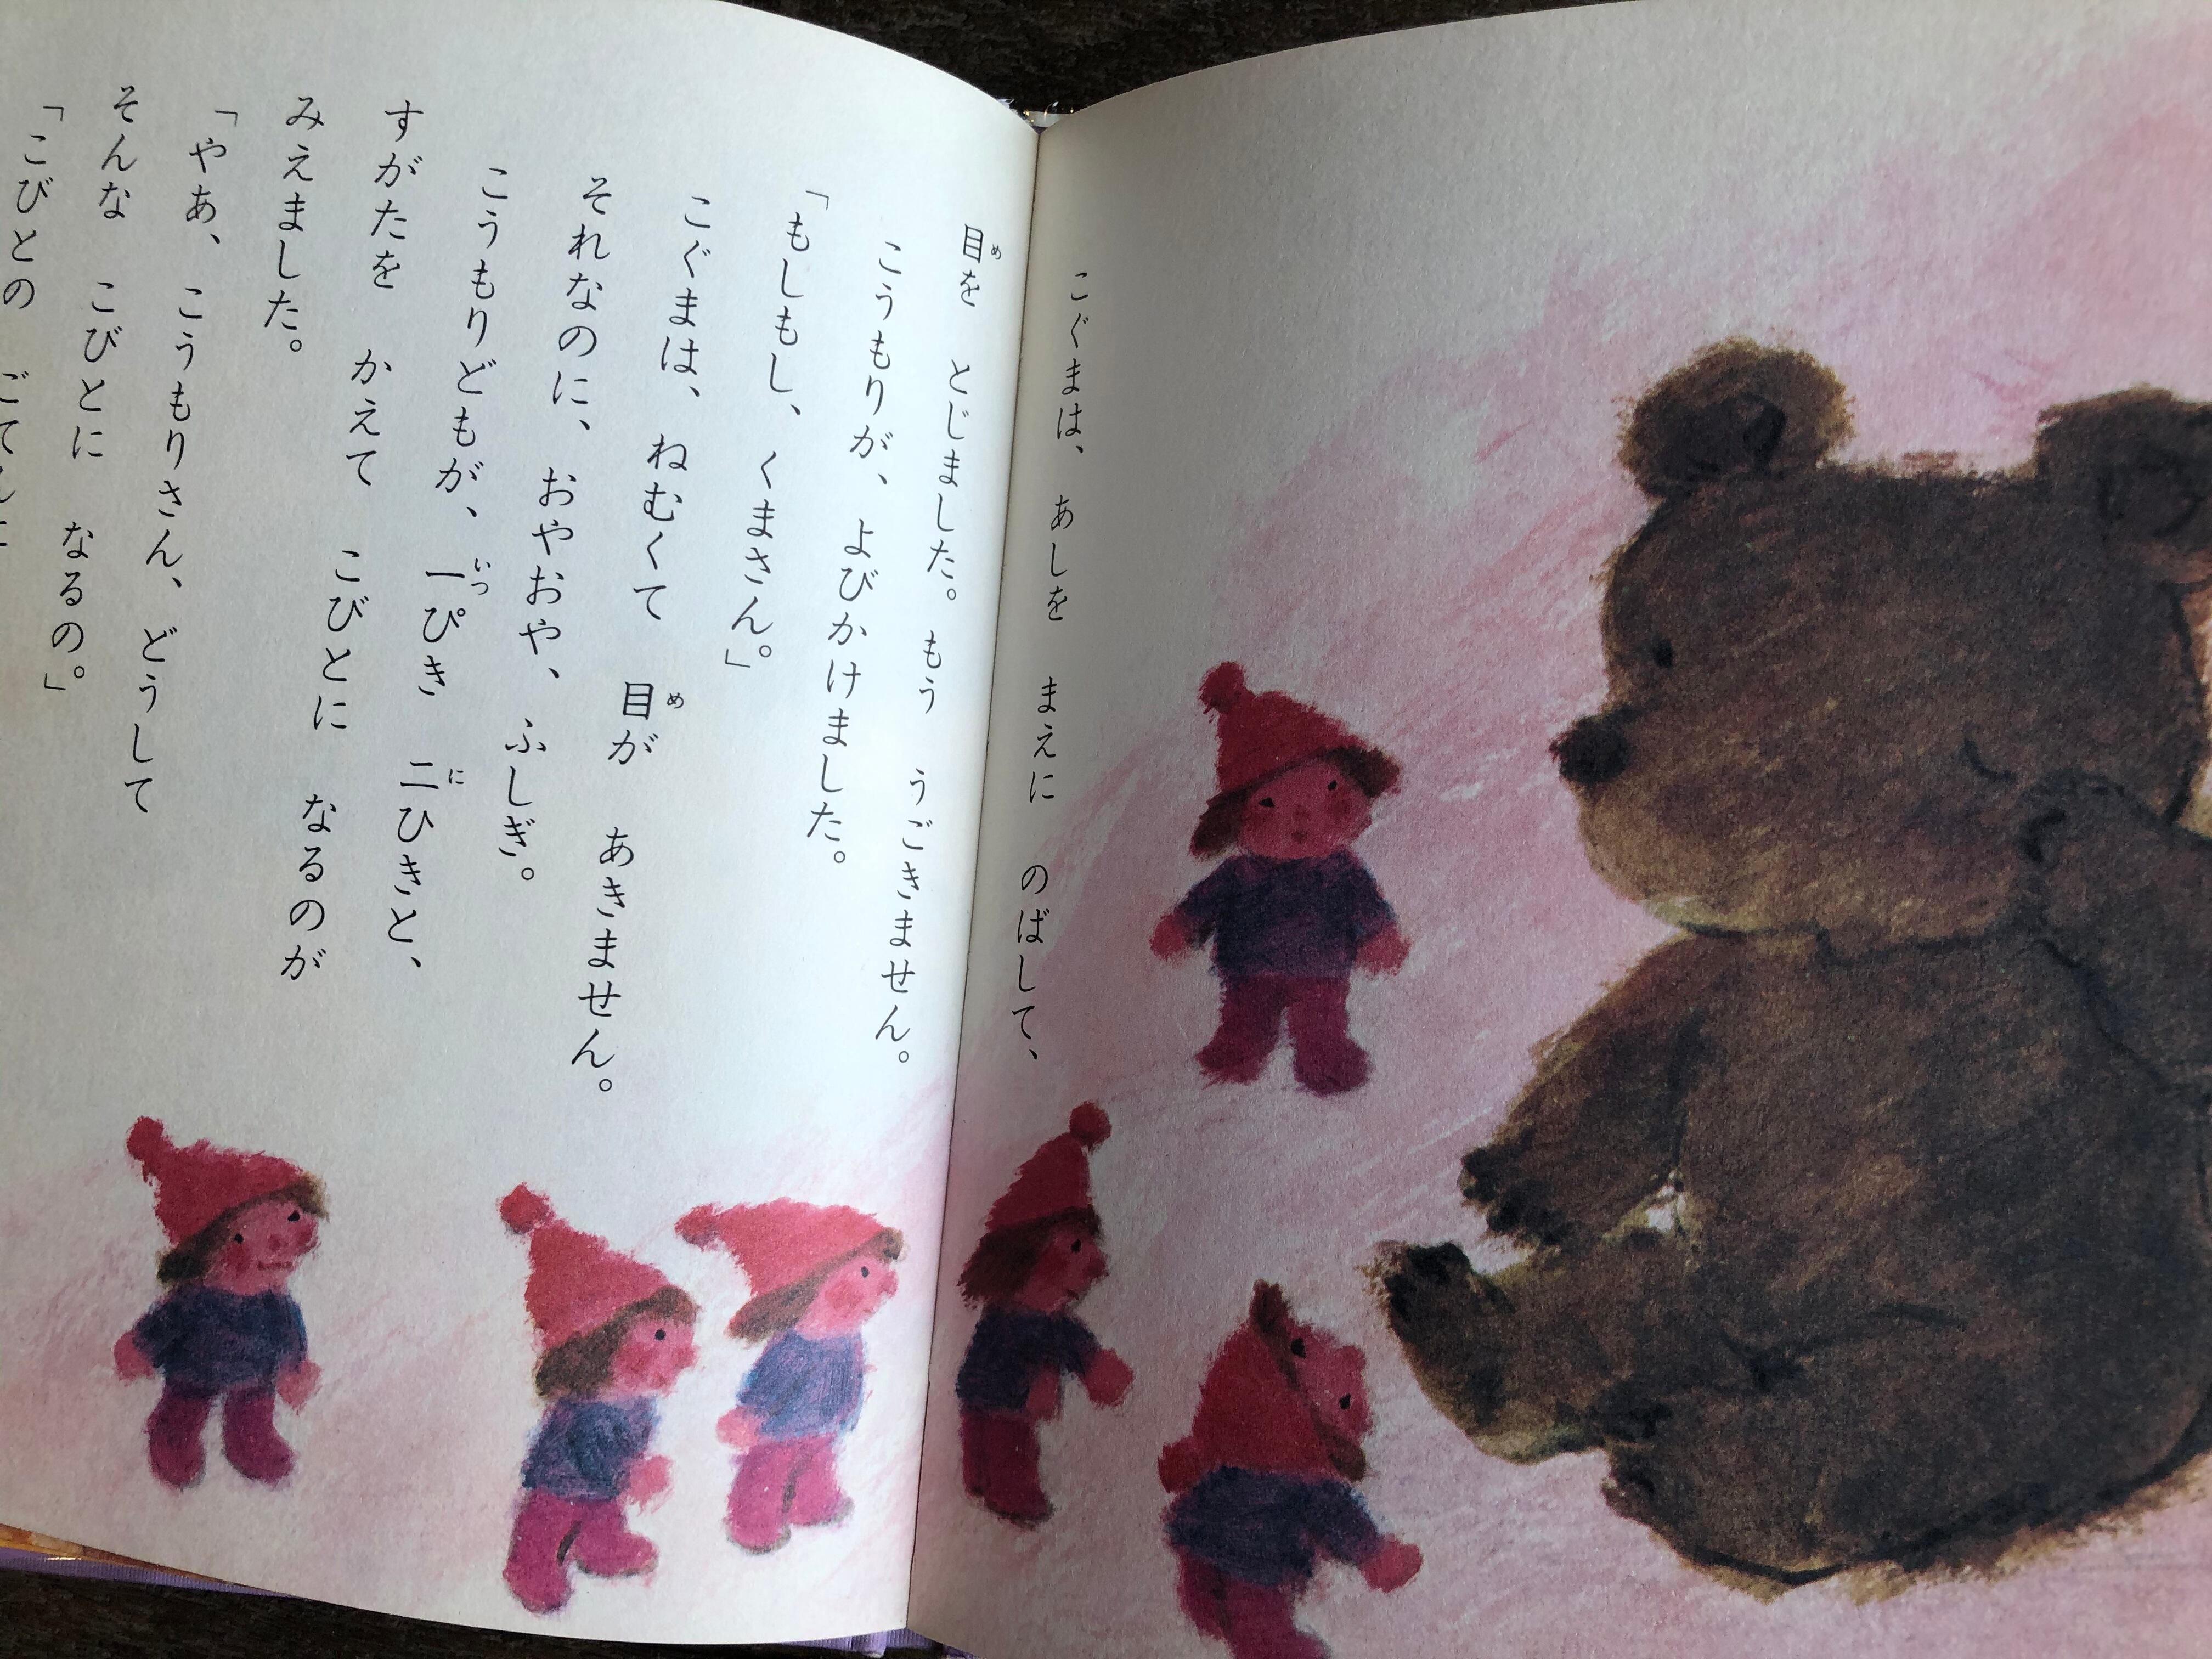 こぐまは、 あしを まえに のばして、
目を とじました。 もう うごきません。
こうもりが、 よびかけました。
「もしもし、 くまさん。」
こぐまは、 ねむくて 目が あきません。
それなのに、 おやおや、 ふしぎ。
こうもりどもが、 一ぴき 二ひきと、
すがたを かえて こびとに なるのが
みえました。
「やあ、 こうもりさん、 どうして
そんな こびとに なるの。」
「こびとの